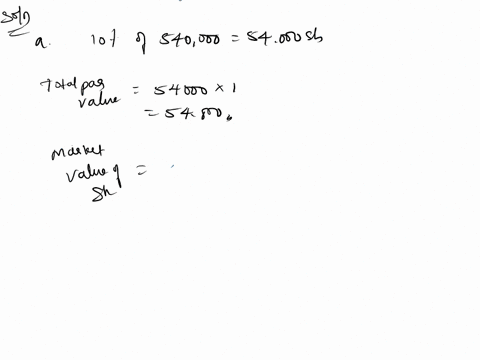 Soln
a. 10% of 540,000 = 54.000 sh
Total par value = 54000 × 1
= 54.000.
Market value of sh =